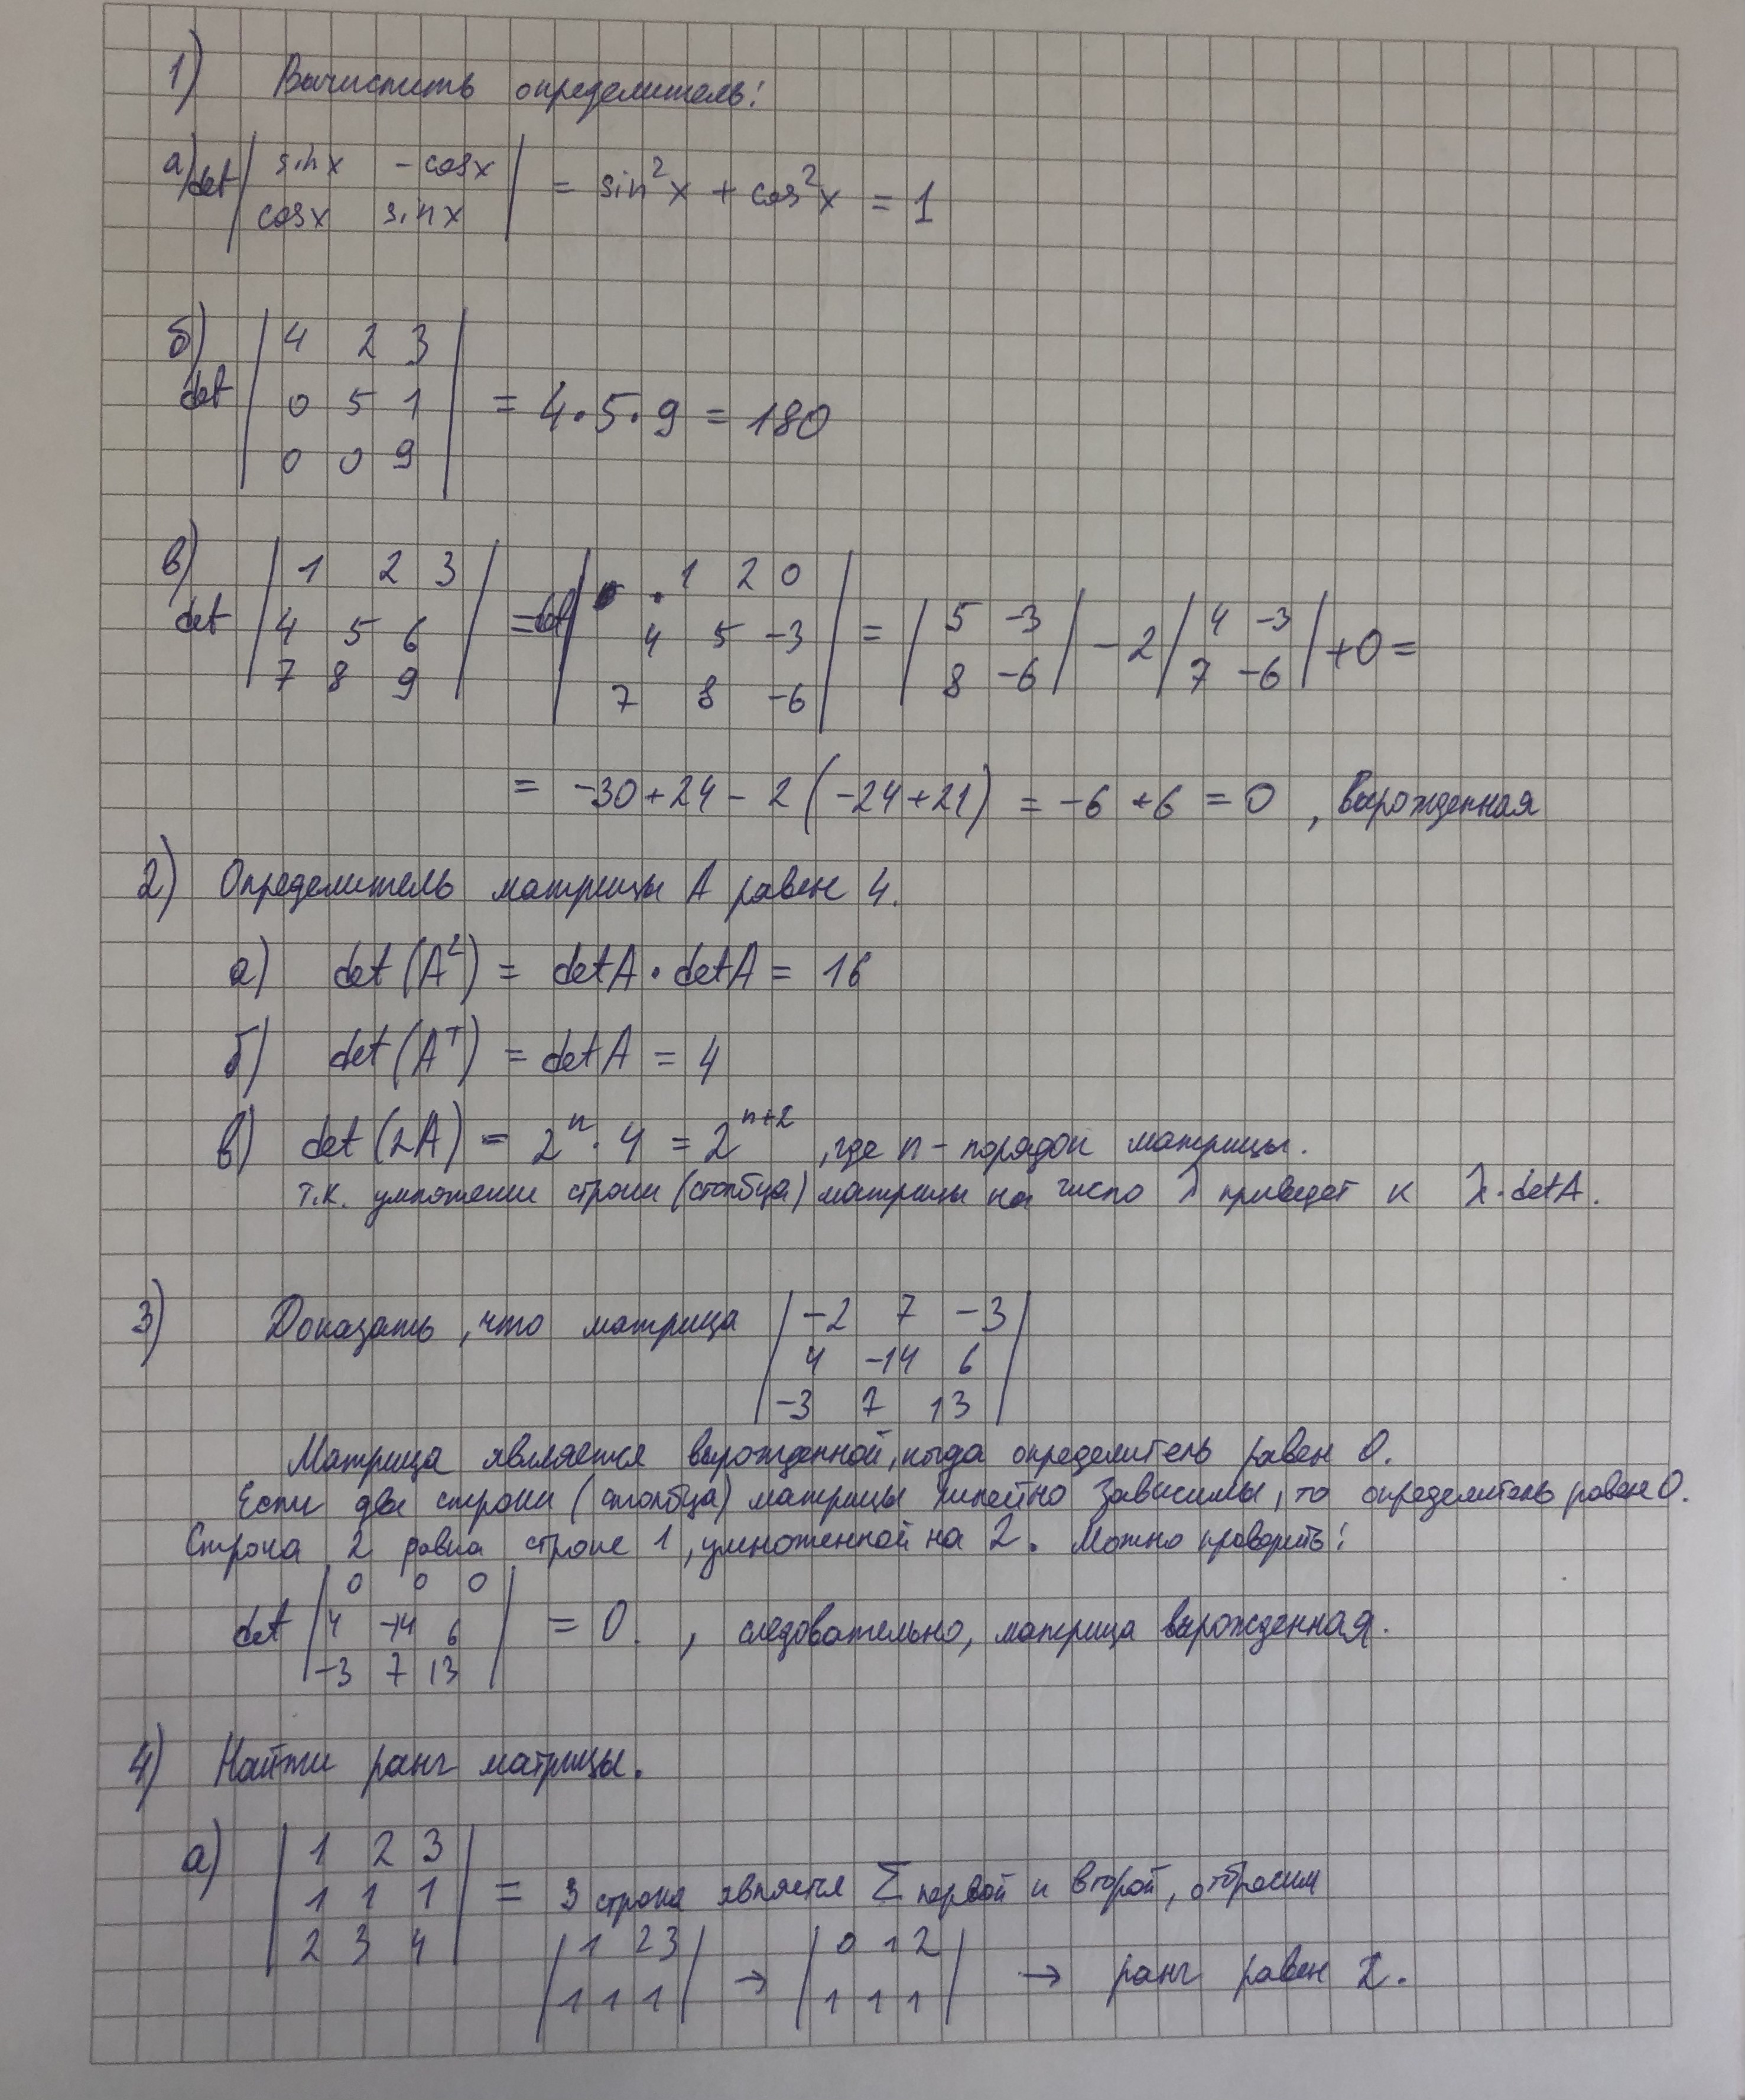 1) Вычислить определитель:
а) det | sinx -cosx | = sin²x + cos²x = 1
| cosx sinx |
б) | 4 2 3 |
det | 0 5 1 | = 4·5·9 = 180
| 0 0 9 |
в) | 1 2 3 | | 1 2 0 |
det | 4 5 6 | = det | 4 5 -3 | = | 5 -3 | - 2 | 4 -3 | + 0 =
| 7 8 9 | | 7 8 -6 | | 8 -6 | | 7 -6 |
= -30+24 - 2(-24+21) = -6 +6 = 0, вырожденная
2) Определитель матрицы A равен 4.
а) det(A²) = detA · detA = 16
б) det(Aᵀ) = detA = 4
в) det(2A) = 2ⁿ · 4 = 2ⁿ⁺², где n - порядок матрицы.
т.к. умножение строки (столбца) матрицы на число λ приведет к λ·detA.
3) Доказать, что матрица | -2 7 -3 |
| 4 -14 6 |
| -3 7 13 |
Матрица является вырожденной, когда определитель равен 0.
Если две строки (столбца) матрицы линейно зависимы, то определитель равен 0.
Строка 2 равна строке 1, умноженной на 2. Можно проверить:
| 0 0 0 |
det | 4 -14 6 | = 0. , следовательно, матрица вырожденная.
| -3 7 13 |
4) Найти ранг матрицы.
а) | 1 2 3 |
| 1 1 1 | = 3 строка является Σ первой и второй, отбросим
| 2 3 4 | | 1 2 3 | | 0 1 2 |
| 1 1 1 | → | 1 1 1 | → ранг равен 2.